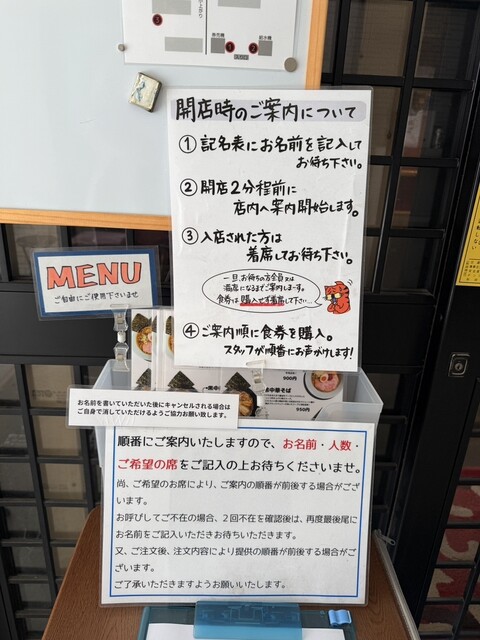 券売機
給水機
1
2
開店時のご案内について
① 記名表にお名前を記入して
お待ち下さい。
② 開店2分程前に
店内へ案内開始します。
③ 入店された方は
着席してお待ち下さい。
一旦、お待ちの方全員又は
満席になるまでご案内しまーす。
食券は購入せず着席して下さい…
④ ご案内順に食券を購入。
スタッフが順番にお声がけします!
MENU
ご自由にご使用下さいませ
900円
中華そば
950円
お名前を書いていただいた後にキャンセルされる場合は
ご自身で消していただけるようご協力お願い致します。
順番にご案内いたしますので、お名前・人数・
ご希望の席をご記入の上お待ちくださいませ。
尚、ご希望のお席により、ご案内の順番が前後する場合がござ
います。
お呼びしてご不在の場合、2回不在を確認後は、再度最後尾に
お名前をご記入いただきお待ちいただきます。
又、ご注文後、注文内容により提供の順番が前後する場合がご
ざいます。
ご了承いただきますようお願いいたします。